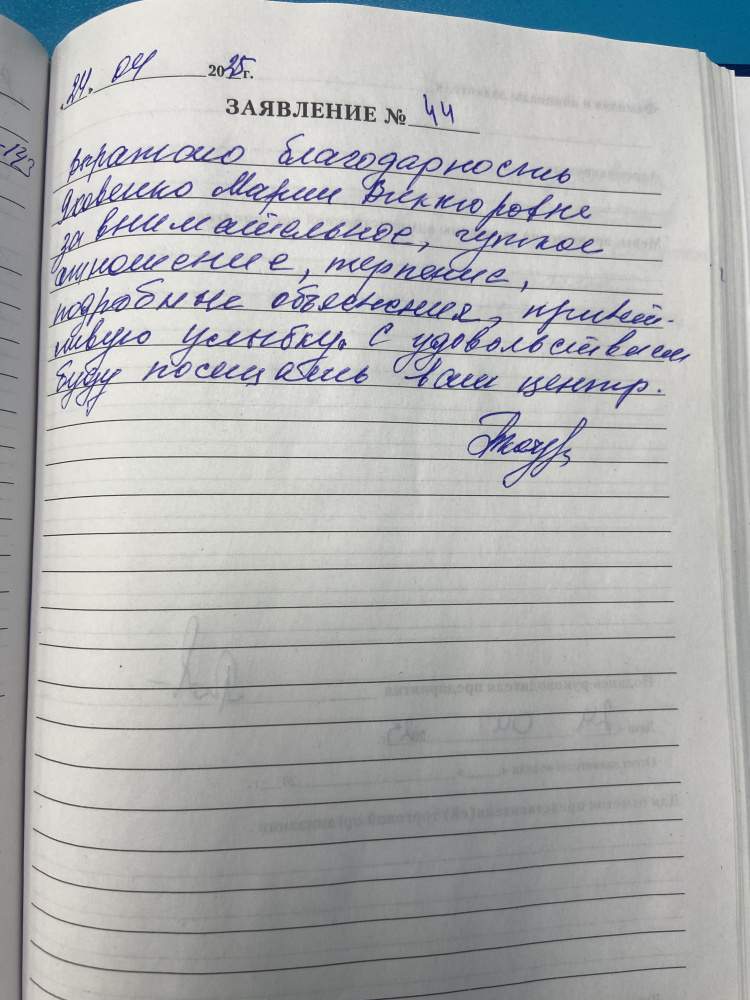 24. 04 2025 г.
ЗАЯВЛЕНИЕ № 44
Выражаю благодарность
Яковенко Марии Викторовне
за внимательное, чуткое
отношение, терпение,
подробные объяснения, привет-
ливую улыбку. С удовольствием
буду посещать ваш центр.